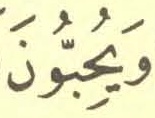 وَيُحِبُّونَ